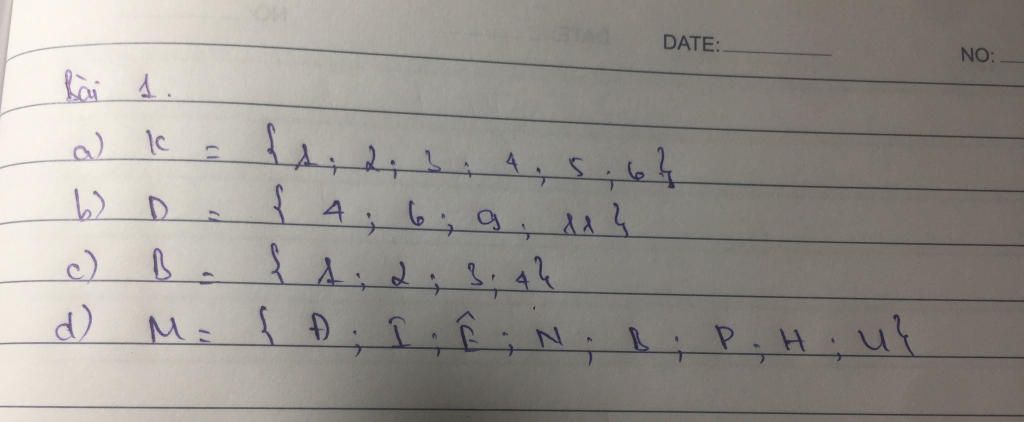 DATE:
NO:
Bài 1.
a) K = { 1 ; 2 ; 3 ; 4 ; 5 ; 6 }
b) D = { 4 ; 6 ; 9 ; 11 }
c) B = { 1 ; 2 ; 3 ; 4 }
d) M = { Đ ; I ; Ê ; N ; B ; P ; H ; U }